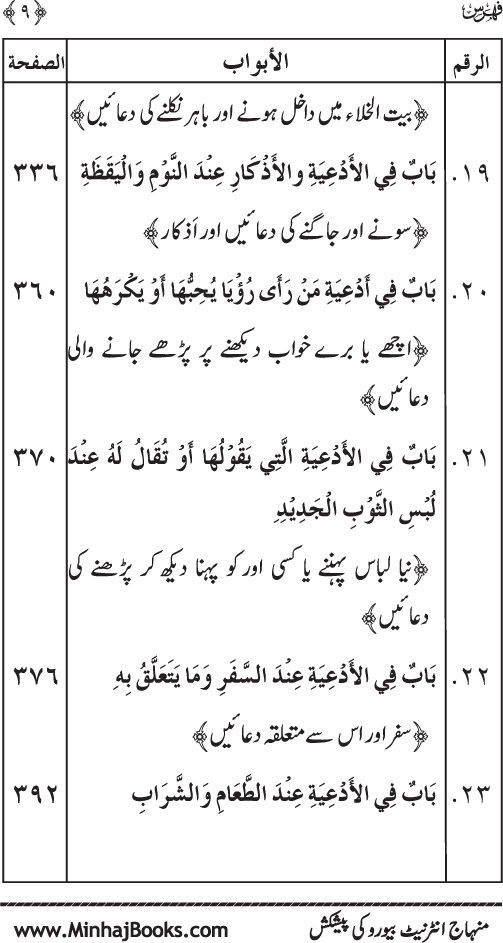 فہرس ﴿٩﴾
الرقم الأبواب الصفحة
﴿بیت الخلاء میں داخل ہونے اور باہر نکلنے کی دعائیں﴾
١٩. بَابٌ فِي الأَدْعِيَةِ والأَذْكَارِ عِنْدَ النَّوْمِ وَالْيَقَظَةِ ٣٣٦
﴿سونے اور جاگنے کی دعائیں اور اَذکار﴾
٢٠. بَابٌ فِي أَدْعِيَةِ مَنْ رَأَى رُؤْيَا يُحِبُّهَا أَوْ يَكْرَهُهَا ٣٦٠
﴿اچھے یا برے خواب دیکھنے پر پڑھے جانے والی
دعائیں﴾
٢١. بَابٌ فِي الأَدْعِيَةِ الَّتِي يَقُوْلُهَا أَوْ تُقَالُ لَهُ عِنْدَ ٣٧٠
لُبْسِ الثَّوْبِ الْجَدِيْدِ
﴿نیا لباس پہننے یا کسی اور کو پہنا دیکھ کر پڑھنے کی
دعائیں﴾
٢٢. بَابٌ فِي الأَدْعِيَةِ عِنْدَ السَّفَرِ وَمَا يَتَعَلَّقُ بِهِ ٣٧٦
﴿سفر اور اس سے متعلقہ دعائیں﴾
٢٣. بَابٌ فِي الأَدْعِيَةِ عِنْدَ الطَّعَامِ وَالشَّرَابِ ٣٩٢
منہاج انٹرنیٹ بیورو کی پیشکش www.MinhajBooks.com